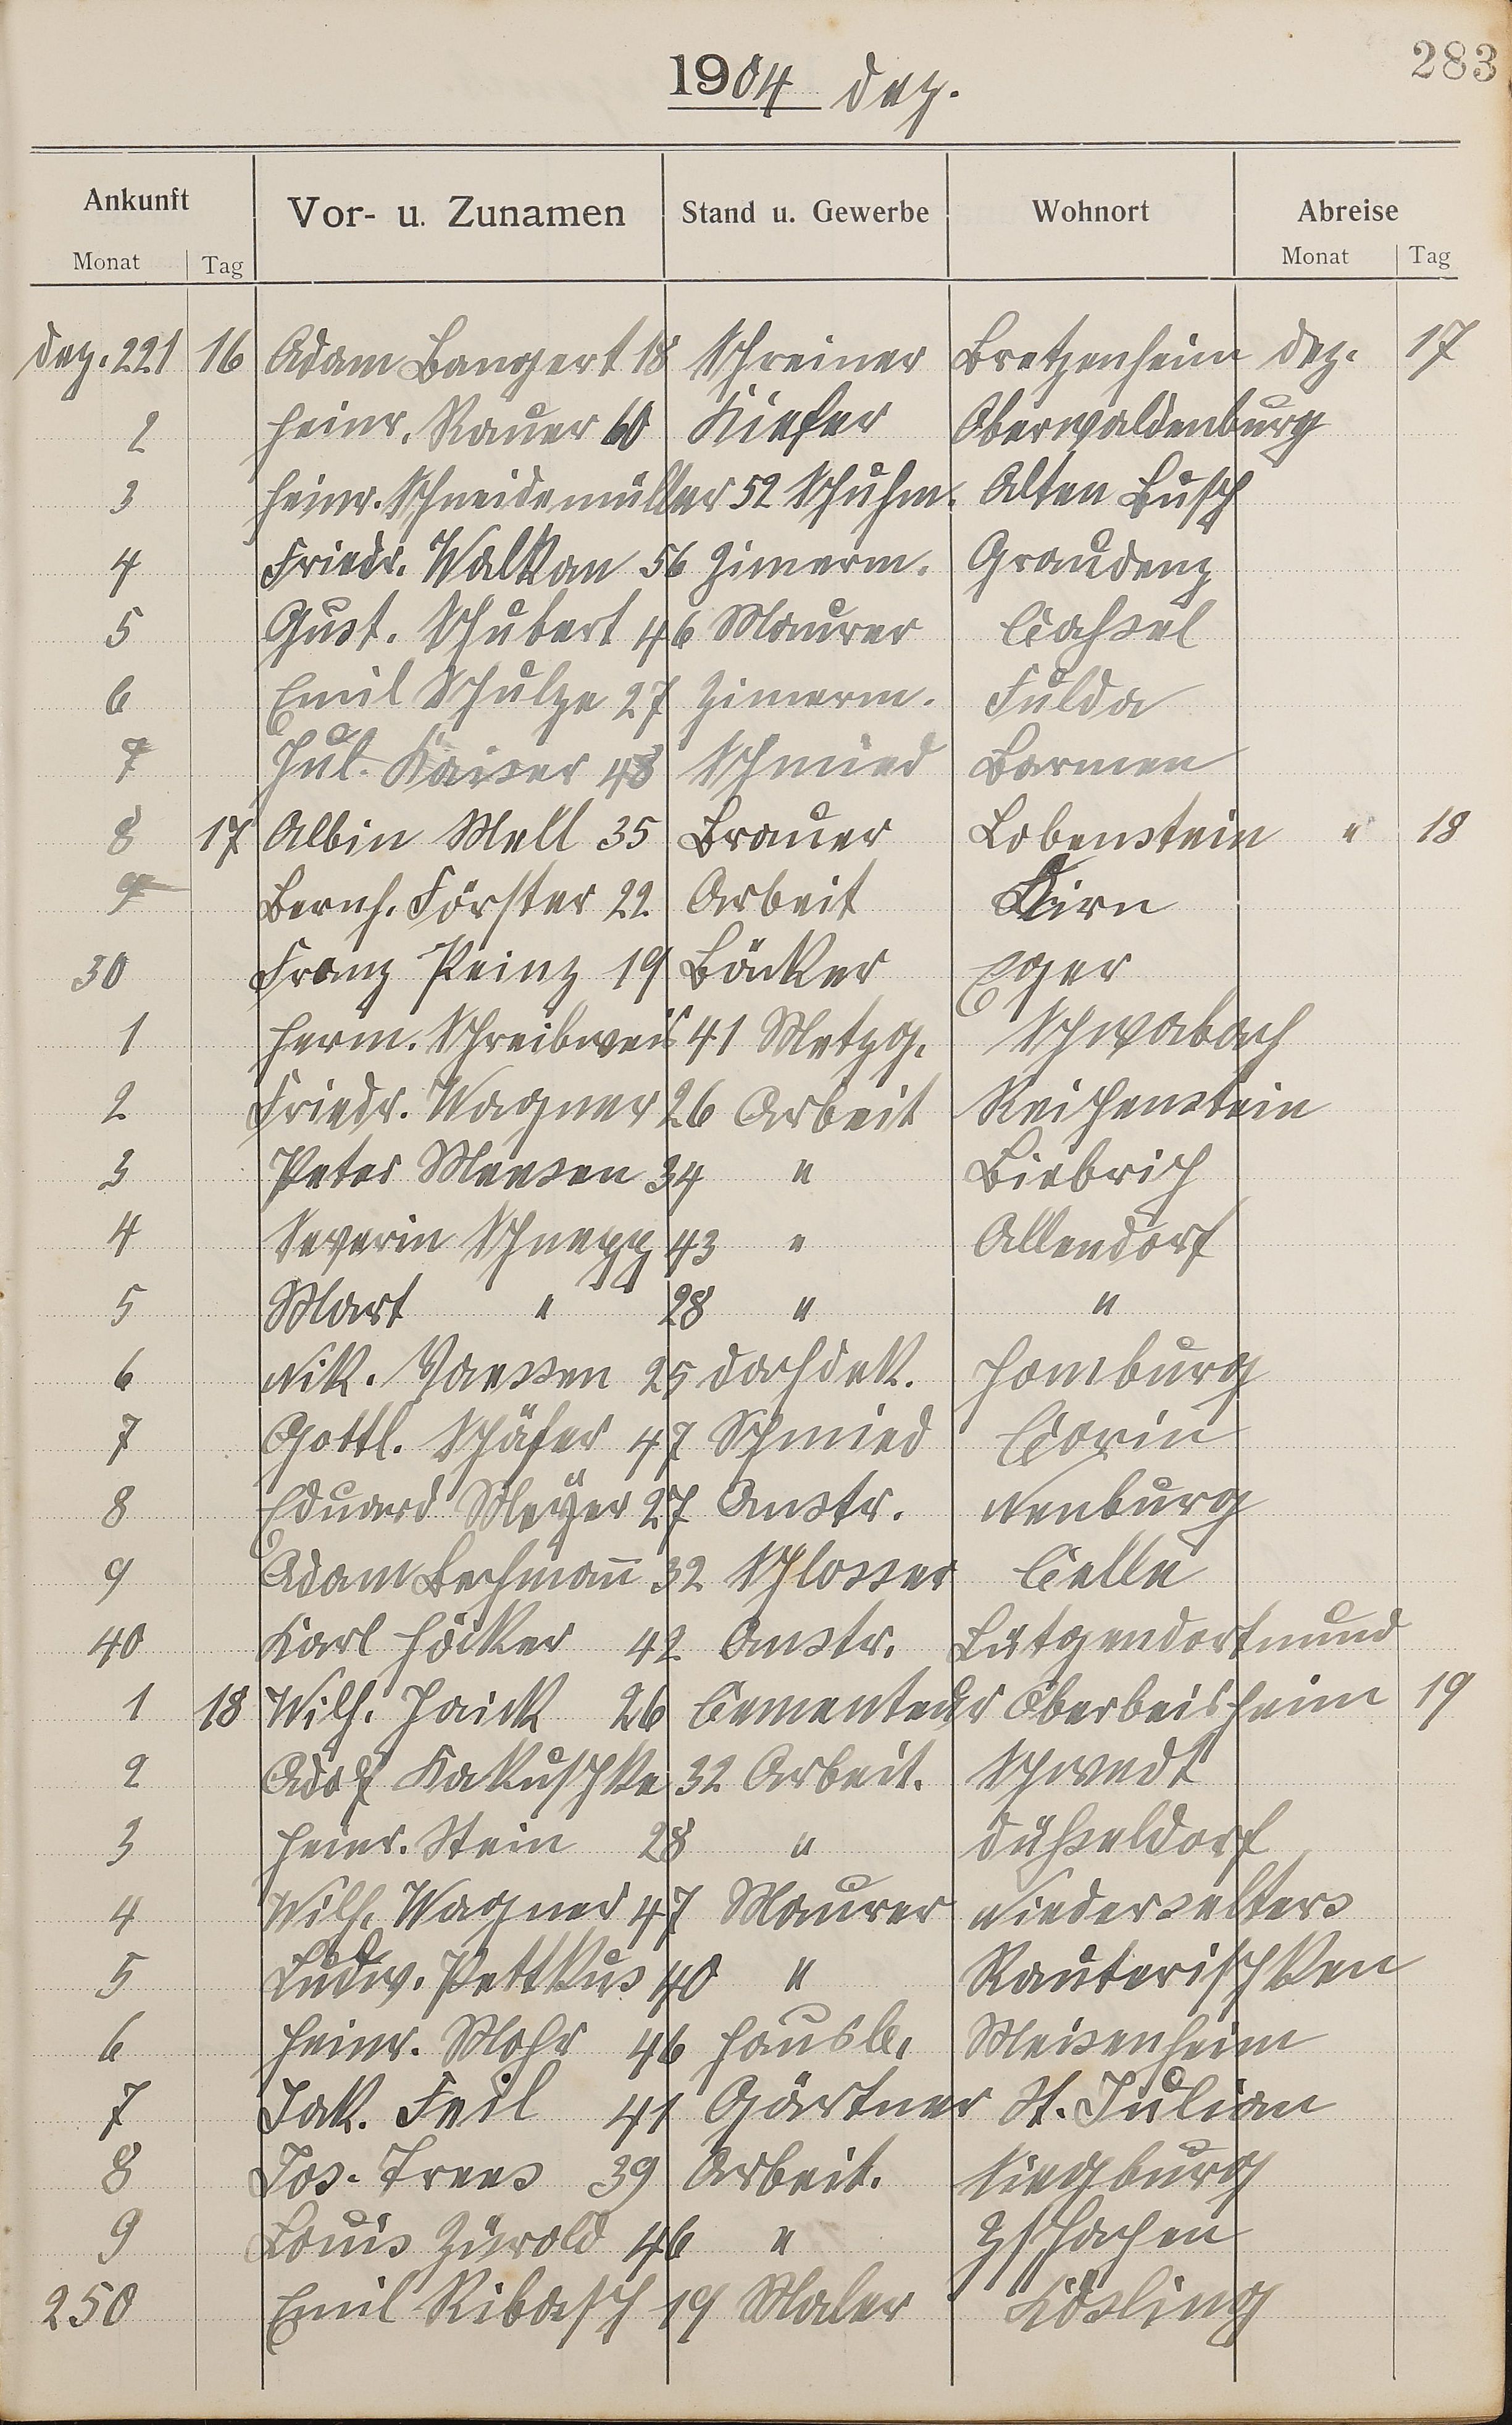 283
1904 Dez.
Ankunft Vor- u. Zunamen Stand u. Gewerbe Wohnort Abreise
Monat Tag Monat Tag
Dez. 221 16 Adam Bangert 18 Schreiner Bretzenheim Dez. 17
2 Heinr. Rauer 60 Kiefer Oberwaldenburg
3 Heinr. Schneidemüller 52 Schuhm. Alten Busch
4 Friedr. Walkan 56 Zimerm. Graudenz
5 Gust. Schubert 46 Maurer Cassel
6 Emil Schulze 27 Zimerm. Fulda
7 Jul. Kaiser 48 Schmied Barmen
8 17 Albin Mell 35 Brauer Lobenstein " 18
9 Bernh. Förster 22 Arbeit Kirn
30 Franz Peinz 19 Bäcker Eger
1 Herm. Schreibweis 41 Metzg. Schwabach
2 Friedr. Wagner 26 Arbeit Reichenstein
3 Peter Meesen 34 " Biebrich
4 Severin Schnepp 43 " Allendorf
5 Mart " 28 " "
6 Nik. Vaessen 25 Dachdek. Homburg
7 Gottl. Schäfer 47 Schmied Corin
8 Eduard Meÿer 27 Anstr. Nenburg
9 Adam Bechman̄ 32 Schlosser Celle
40 Karl Höcker 42 Anstr. Lütgendortmund
1 18 Wilh. Jaick 26 Cementeur Oberbeisheim 19
2 Adolf Kakuschke 32 Arbeit. Schwedt
3 Heinr. Stein 28 " Düsseldorf
4 Wilh. Wagner 47 Maurer Niederselters
5 Ludw. Pettkus 40 " Rauterischken
6 Heinr. Mohr 46 Hausb. Meisenheim
7 Jak. Feil 41 Gärtner St. Julian
8 Jos. Trees 39 Arbeit. Siegburg
9 Louis Zürold 46 " Zschachen
250 Emil Ribasch 19 Maler Kösling